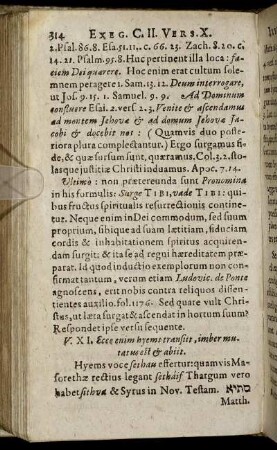 314 EXEG. C. II. VERS. X.
2. Psal. 86. 8. Esa. 51. 11. c. 66. 23. Zach. 8. 20. c.
14. 21. Psalm. 95. 8. Huc pertinent illa loca: fa-
ciem Dei quærere. Hoc enim erat cultum solem-
nem peragere 1. Sam. 13. 12. Deum interrogare,
ut Jos. 9. 15. 1. Samuel. 9. 9. Ad Dominum
confluere Esai. 2. vers. 2 3. Venite & ascendamus
ad montem Jehovæ & ad domum Jehovæ Ja-
cobi & docebit nos: (Quamvis duo poste-
riora plura complectantur.) Ergo surgamus fi-
de, & quæ sursum sunt, quæramus, Col. 3. 2. sto-
lasque justitiæ Christi induamus. Apoc. 7. 14.
Ultimò: non prætereunda sunt Pronomina
in his formulis: Surge TIBI, vade TIBI: qui-
bus fructus spiritualis resurrectionis contine-
tur. Neque enim in Dei commodum, sed suum
proprium, sibique ad suam lætitiam, fiduciam
cordis & inhabitationem spiritus acquiren-
dam surgit: & ita se ad regni hæreditatem præ-
parat. Id quod inductio exemplorum non con-
firmat tantum, verum etiam Ludovic. de Ponte
agnoscens, erit nobis contra reliquos dissen-
tientes auxilio. fol. 1176. Sed quare vult Chri-
stus, ut læta surgat & ascendat in hortum suum?
Respondet ipse versu sequente.
V. XI. Ecce enim hyems transiit, imber mu-
tatus est & abiit.
Hyems voce sethau effertur: quamvis Ma-
sorethæ rectius legant sethaif Thargum vero
habet sithva & Syrus in Nov. Testam. סתיא
Matth.